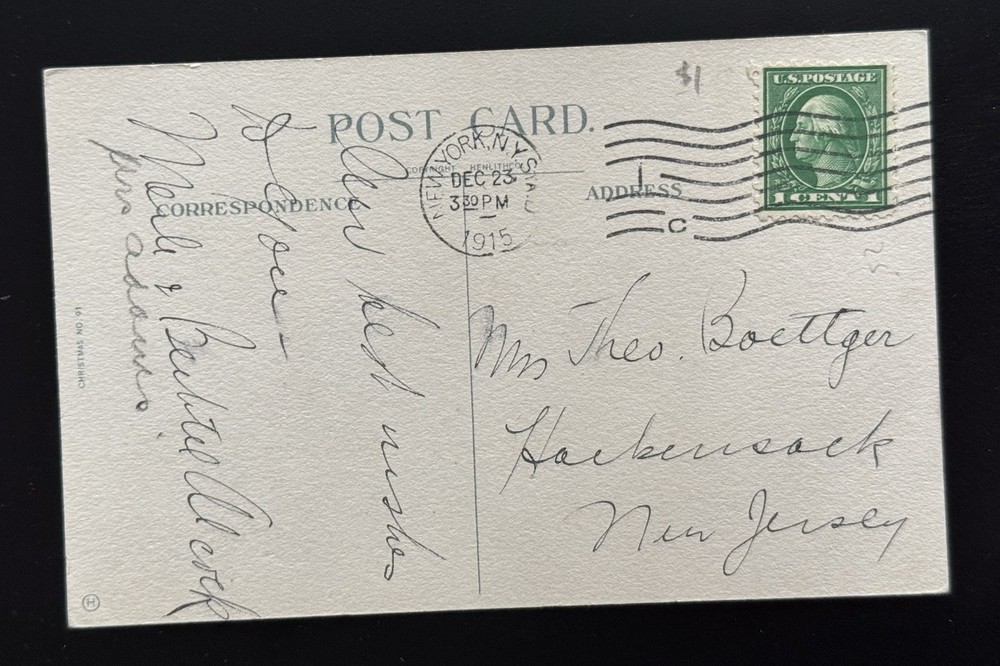 $1
U.S. POSTAGE
1 CENT 1
POST CARD.
COPYRIGHT HENLITHCO
NEW YORK, N.Y. STA.
DEC 23
3 30 PM
1915
C
CORRESPONDENCE
ADDRESS
Our best wishes
to
Merle &
per adams
Mrs Theo. Boettger
Hackensack
New Jersey
CHRISTMAS NO. 91
H